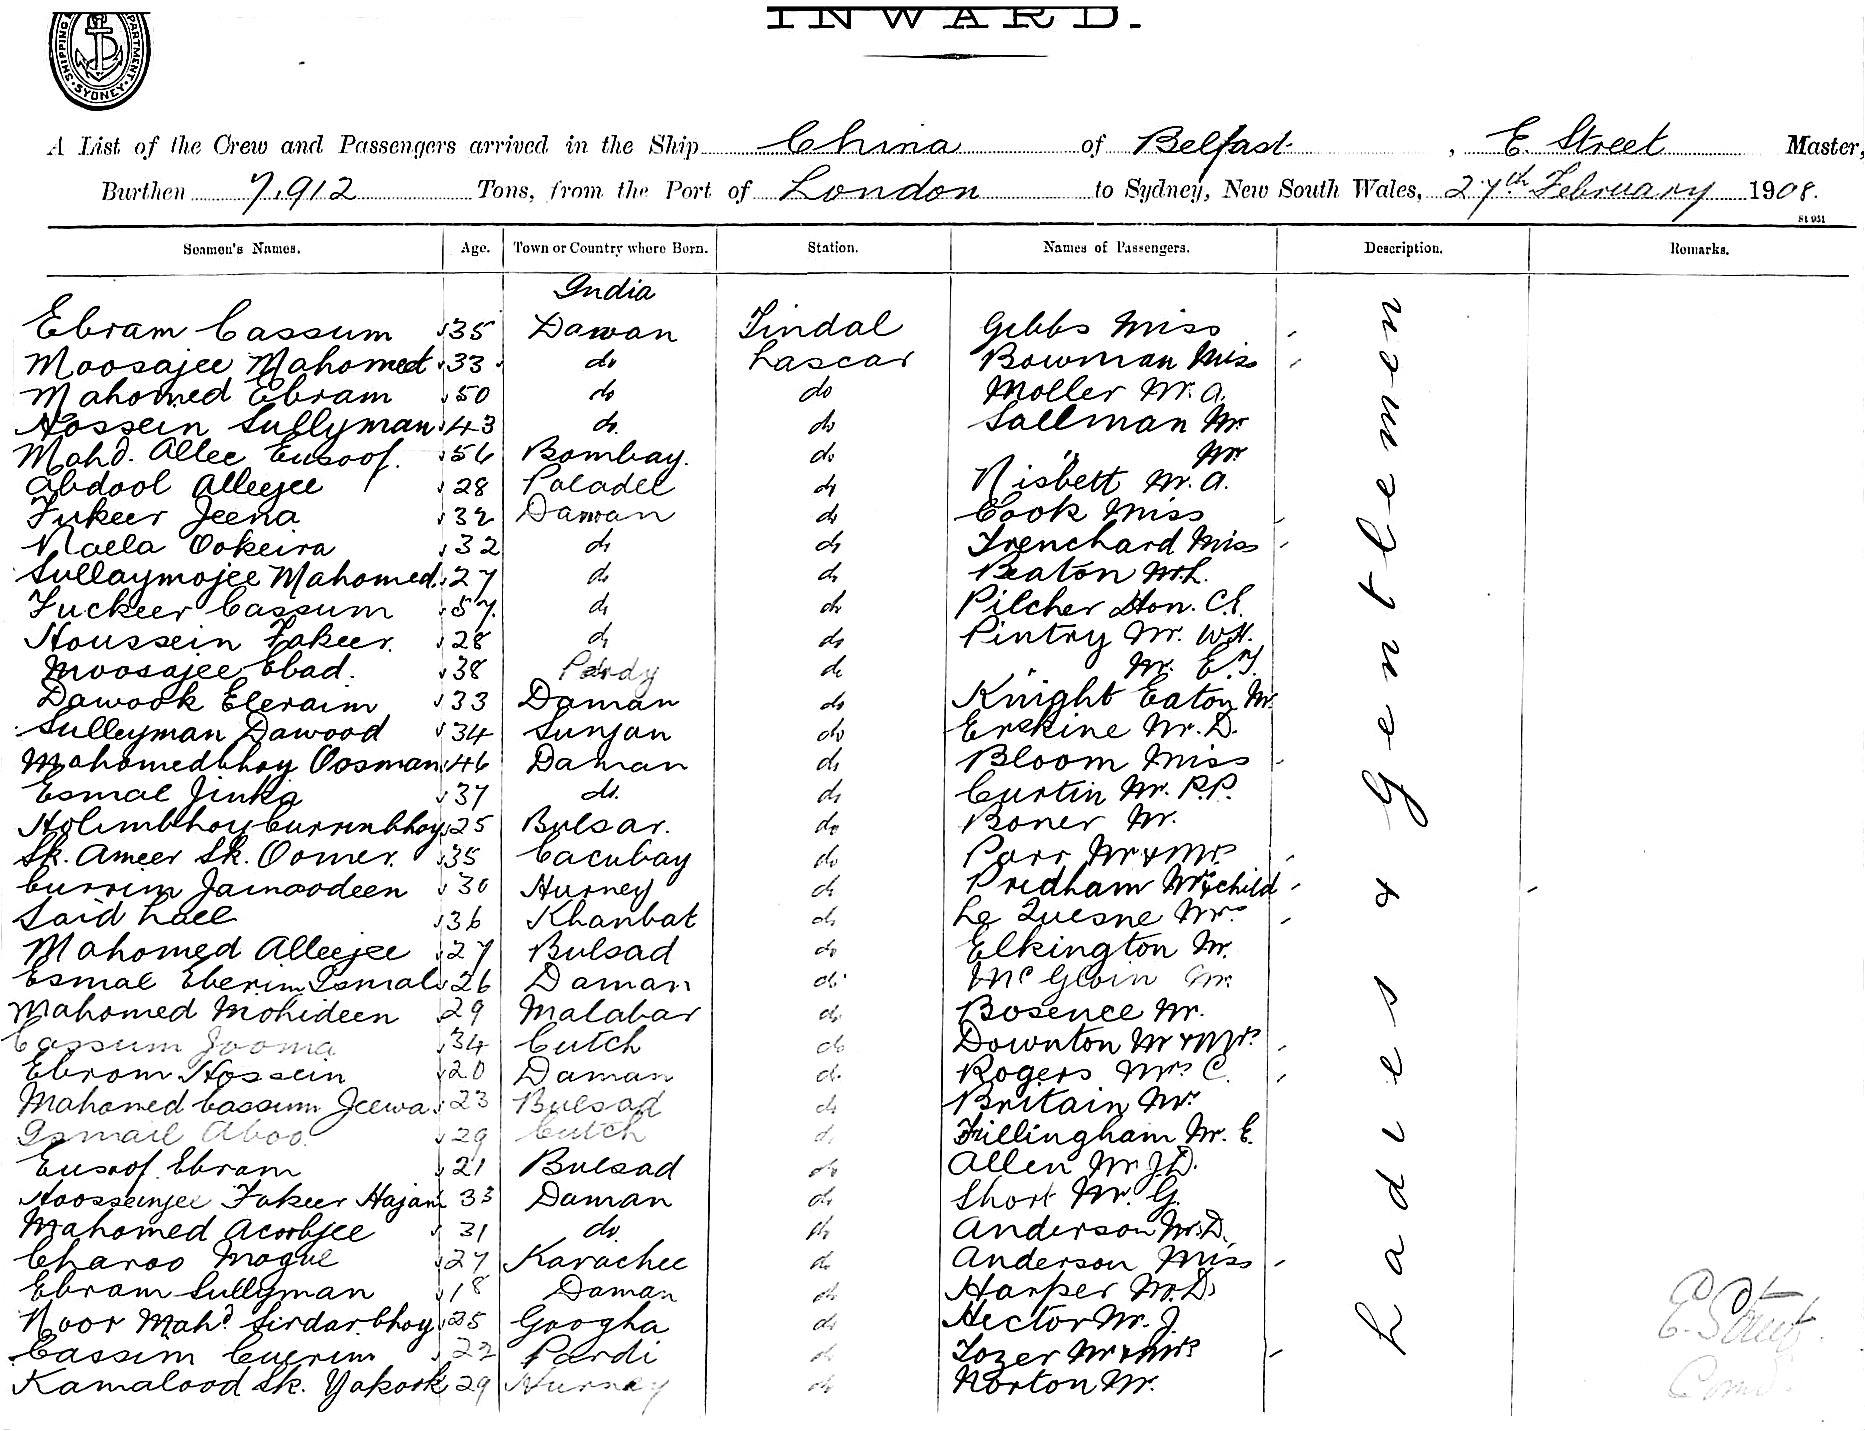 INWARD.
SHIPPING DEPARTMENT · SYDNEY ·
A List of the Crew and Passengers arrived in the Ship China of Belfast, E. Street Master,
Burthen 7,912 Tons, from the Port of London to Sydney, New South Wales, 27th February 1908.
St 951
Seamen's Names. Age. Town or Country where Born. Station. Names of Passengers. Description. Remarks.
India
Ebram Cassum 35 Daman Tindal Gibbs Miss
Moosajee Mahomed 33 do Lascar Bowman Miss
Mahomed Ebram 50 do do Moller Mr. A.
Hossein Sullyman 43 do. do Sallman Mr
Mahd. Allee Eusoof. 56 Bombay. do " Mr
Abdool Alleejee 28 do Nisbett Mr. A.
Fukeer Jeena 32 Daman do Cook Miss
Ookeira 32 do do Trenchard Miss
Sullaymojee Mahomed. 27 do do Beaton Mr. L.
Fuckeer Cassum 57. do do Pilcher Hon. C.E.
Houssein Fakeer. 28 do do Pintry Mr. W.H.
Moosajee Ebad. 38 do " Mr. E.T.
Dawook Eleraim 33 Daman do Knight Eaton Mr
Sulleyman Dawood 34 Sunjan do Erskine Mr. D.
Mahomedbhoy Oosman 46 Daman do Bloom Miss
Esmal Jinka 37 do. do Curtin Mr. P.P.
Holimbhoy Currimbhoy 25 Bulsar. do Boner Mr.
Sk. Ameer Sk. Oomer. 35 Cacubay do Parr Mr & Mrs
Currim Jainoodeen 30 Hurney do Pridham Mrs & child
Said Lall 36 Khanbat do Le Quesne Mrs
Mahomed Alleejee 27 Bulsad do Elkington Mr.
Esmal Eberim Ismal 26 Daman do McGloin Mr.
Mahomed Mohideen 29 Malabar do Bosence Mr.
Cassum Jooma 34 Cutch do Downton Mr & Mrs
Ebrom Hossein 20 Daman do Rogers Mrs C.
Mahomed Cassum Jeewa 23 Bulsad do Britain Mr.
Ismail Aboo. 29 Cutch do Frillingham Mr. E.
Eusoof Ebram 21 Bulsad do Allen Mr J.D.
Hoosseinjee Fakeer Hajam 33 Daman do Short Mr. G.
Mahomed Acoobjee 31 do. do Anderson Mr. D.
Charoo Mogul 27 Karachee do Anderson Miss
Ebram Sullyman 18 Daman do Harper Mr. D.
Noor Mahd. Sirdarbhoy 25 Goógha do Hector Mr. J.
Cassim Cuerim 22 Pardi do Tozer Mr & Mrs
Kamalood Sk. Yakook 29 Hurney do Norton Mr.
Ladies & Gentlemen
E. Street
Comd.